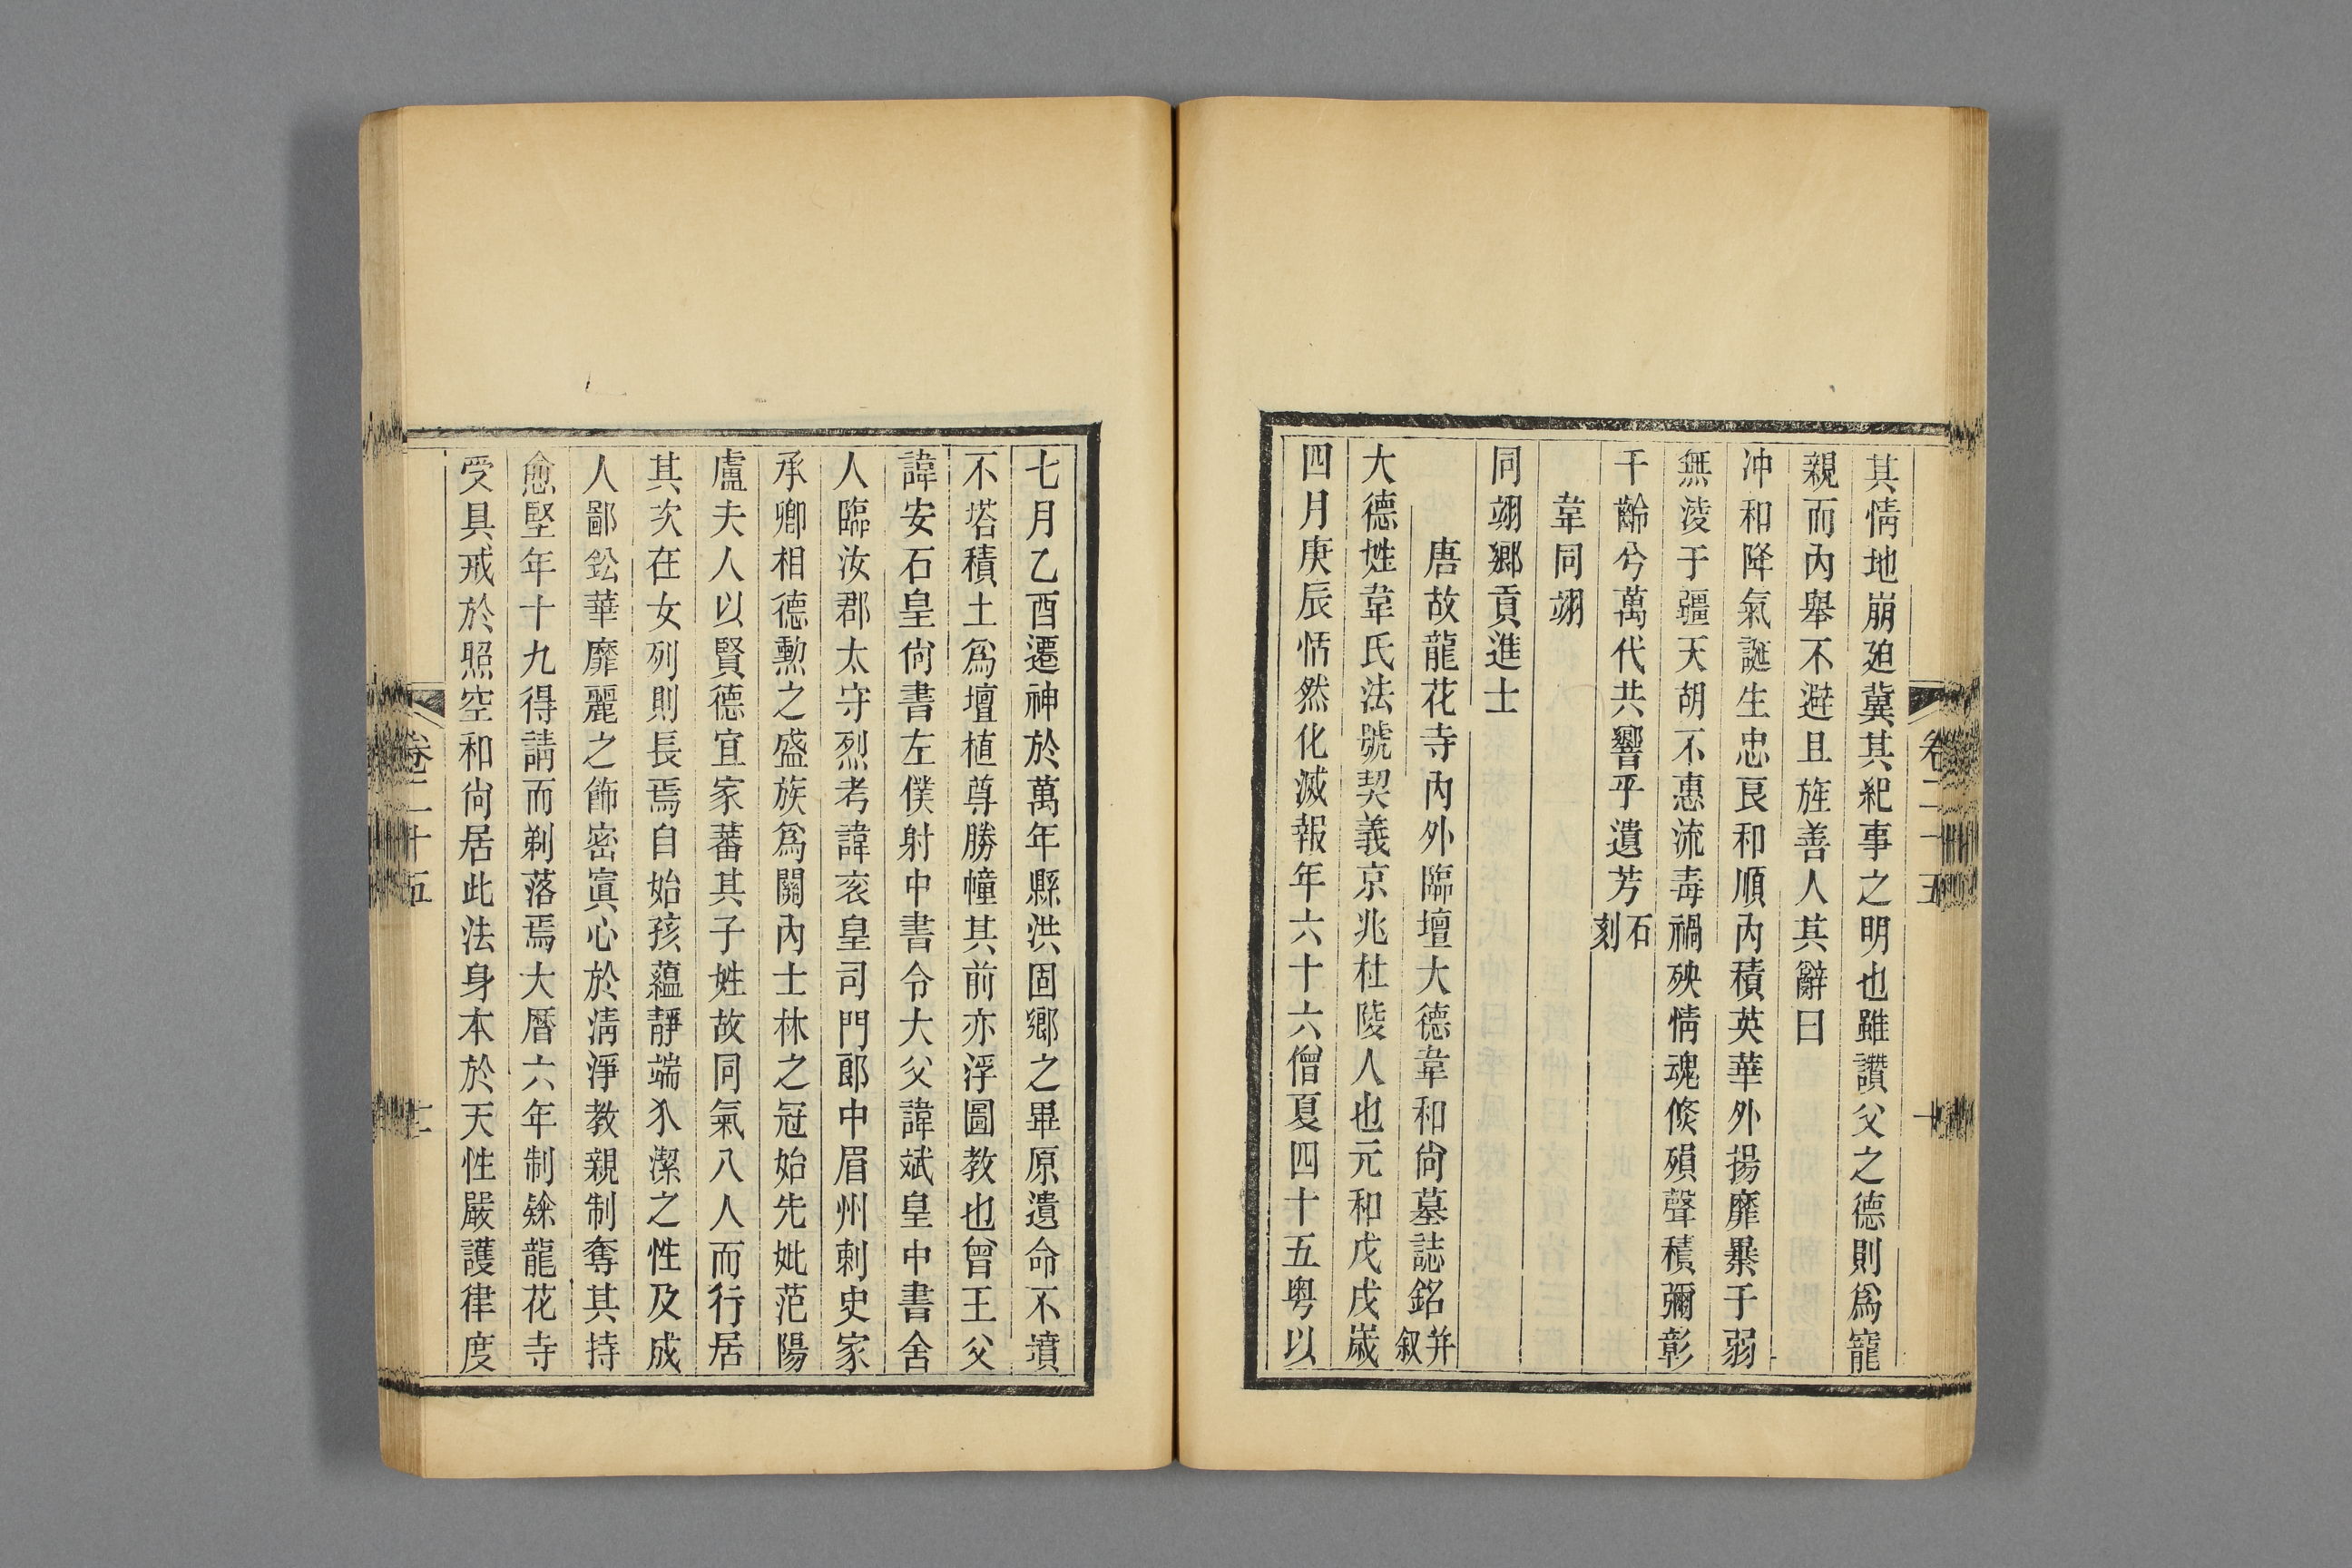 其情地崩廹冀其紀事之明也雖讚父之德則爲寵
親而內舉不避且旌善人其辭曰
冲和降氣誕生忠良和順內積英華外揚靡纍于弱
無淩于疆天胡不惠流毒禍殃情魂倏殞聲積彌彰
千齡兮萬代共響乎遺芳石刻
韋同翊
同翊鄉貢進士
唐故龍花寺內外臨壇大德韋和尙墓誌銘并叙
大德姓韋氏法號契義京兆杜陵人也元和戊戌嵗
四月庚辰恬然化滅報年六十六僧夏四十五粤以
卷二十五
七月乙酉遷神於萬年縣洪固鄉之畢原遺命不墳
不塔積土爲壇植尊勝幢其前亦浮圖教也曾王父
諱安石皇尙書左僕射中書令大父諱斌皇中書舍
人臨汝郡太守烈考諱衮皇司門郎中眉州刺史家
承卿相德勲之盛族爲關內士林之冠始先妣范陽
盧夫人以賢德宜家蕃其子姓故同氣八人而行居
其次在女列則長焉自始孩蘊靜端介潔之性及成
人鄙鉛華靡麗之飾密寘心於淸淨教親制奪其持
愈堅年十九得請而剃落焉大曆六年制𨽻龍花寺
受具戒於照空和尙居此法身本於天性嚴護律度
卷二十五